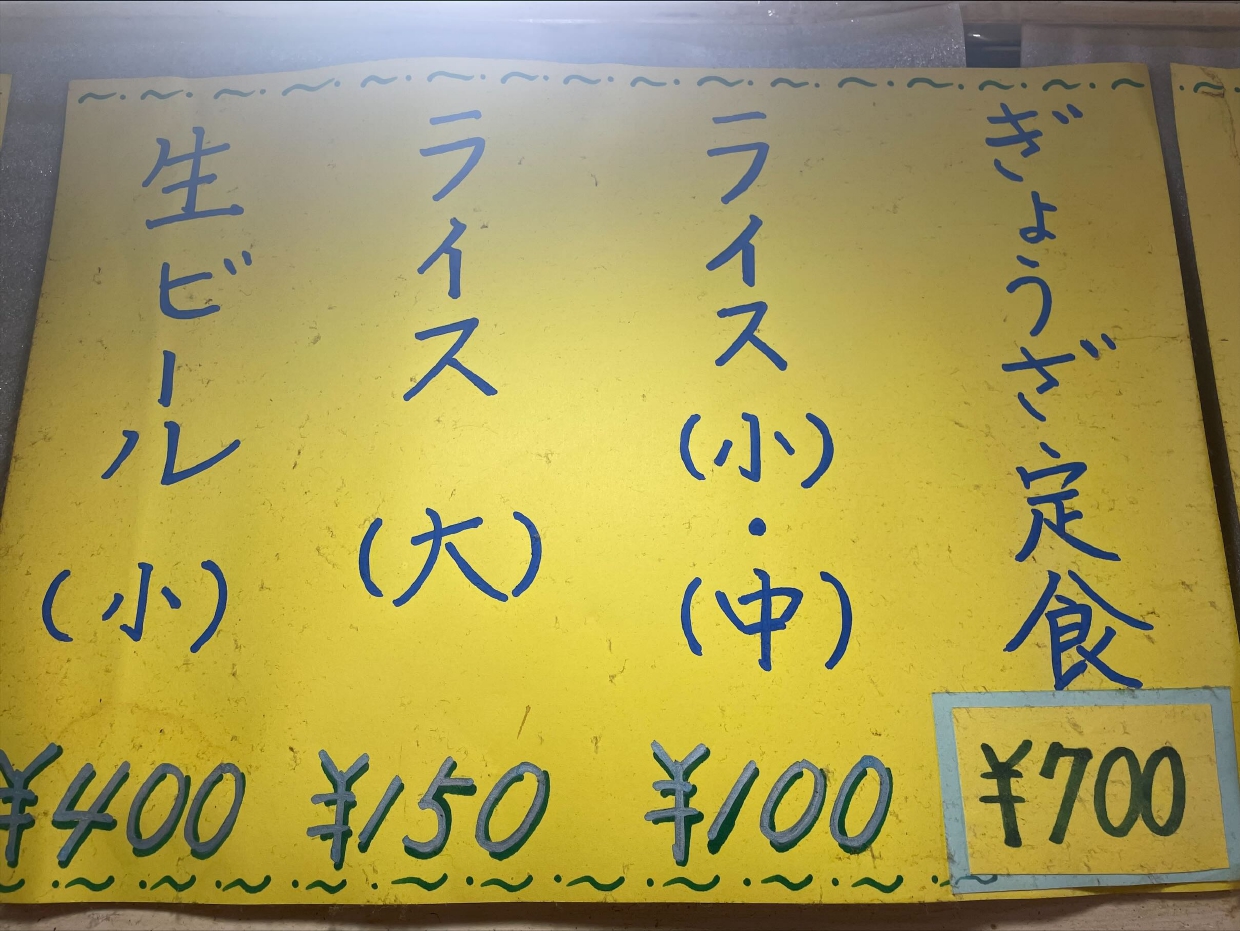 ぎょうざ定食
¥700
ライス(小)・(中)
¥100
ライス(大)
¥150
生ビール(小)
¥400